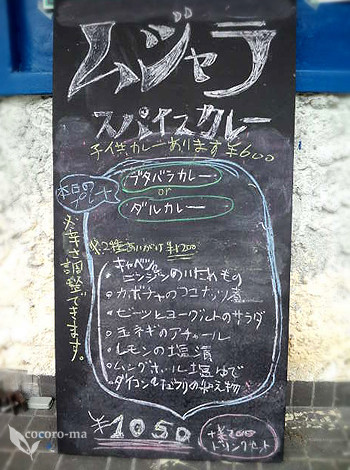 ムジャラ
スパイスカレー
子供カレーあります ¥600
本日の
プレート
ブタバラカレー
or
ダルカレー
※2種あいがけ ¥1200
※辛さ調整できます。
• キャベツと
ニンジンのいためもの
• カボチャのココナッツ煮
• ビーツとヨーグルトのサラダ
• 玉ネギのアチャール
• レモンの塩漬
• ムングホール塩ゆで
ダイコンと
の和え物
¥1050
+¥200
ドリンクセット
cocoro-ma